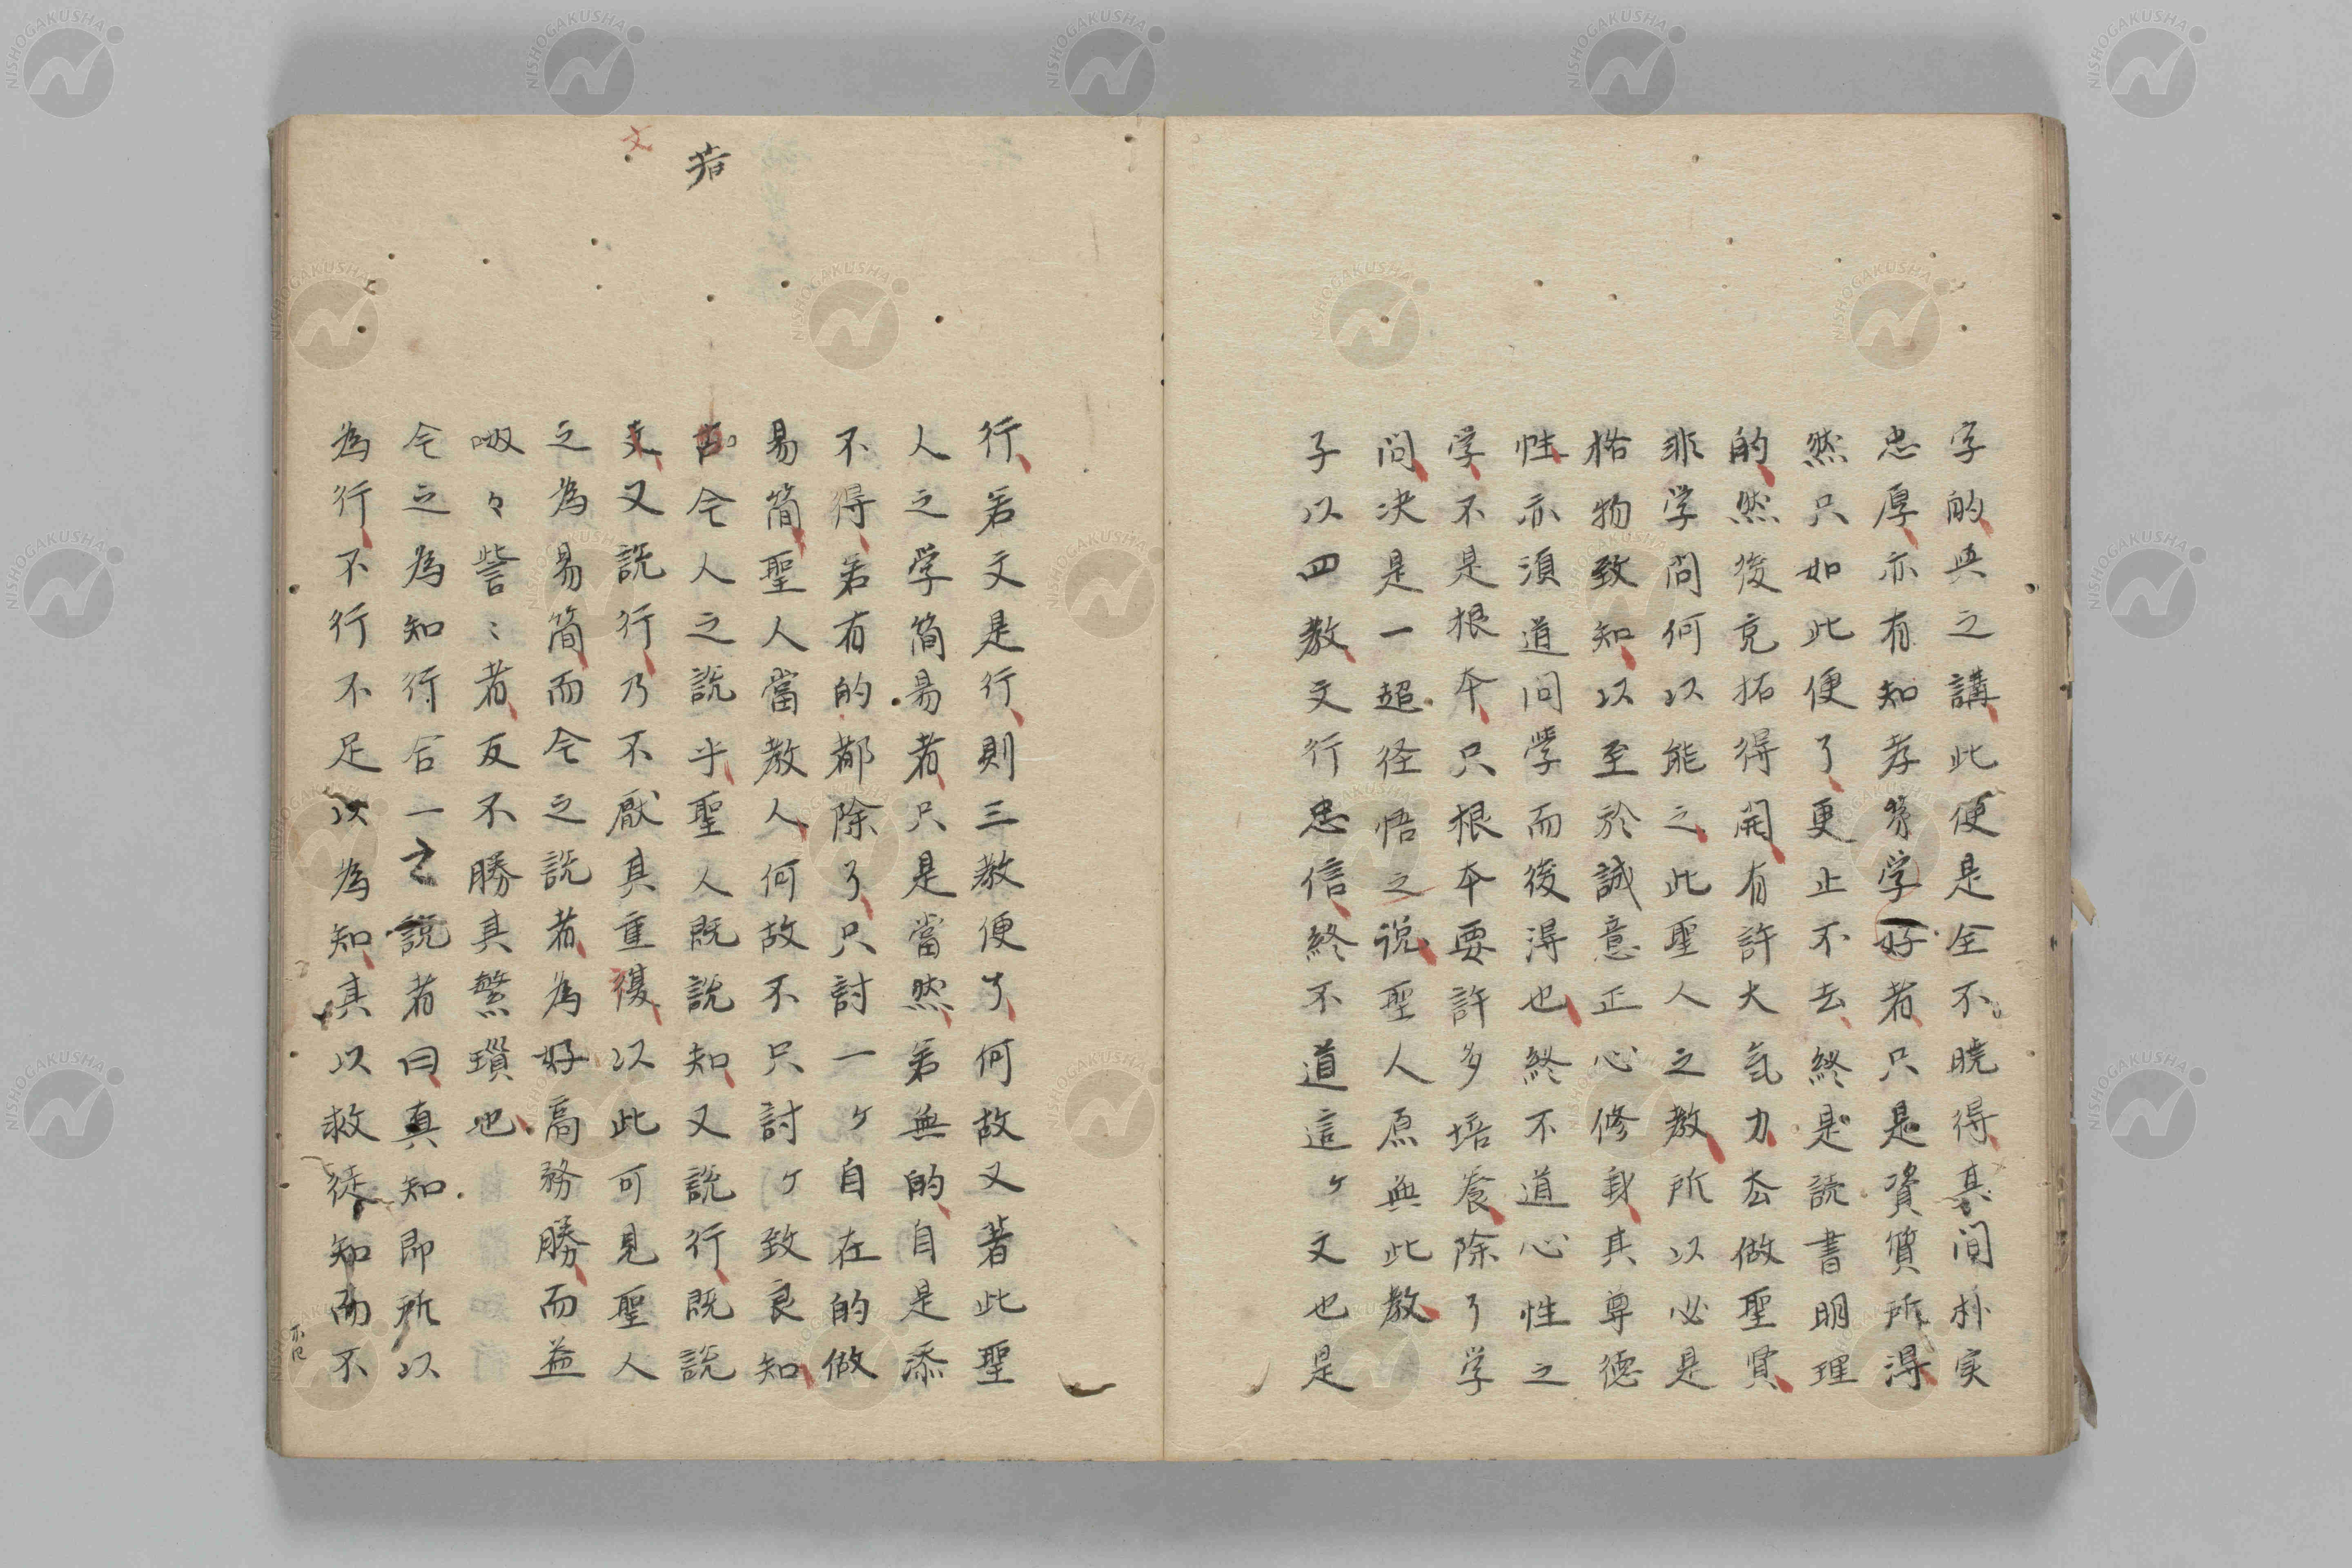 字的與之講此便是全不曉得其間朴実
忠厚亦有知孝弟学好者只是資質所得
然只如此便了更止不去終是読書明理
的然後克拓得開有許大氣力去做聖賢
非学問何以能之此聖人之教所以必是
格物致知以至於誠意正心修我其尊德
性亦須道問學而後淂也終不道心性之
学不是根本只根本要許多培養除了学
問决是一超径悟之說聖人原無此教
子以四教文行忠信終不道這ヶ文也是
行若文是行行則三教便了何故又著此聖
人之学簡易者只是當然若無的自是添
不得若有的都除了只討一ヶ自在的做
易簡聖人當教人何故不只討ヶ致良知
若
古今人之說乎聖人既說知又說行既說
文
文又說行乃不厭其重復以此可見聖人
之為易簡而今之說者為好高務勝而益
呶々訾〻者反不勝其繁瑣也
今之為知行合一之說者曰真知即所以
為行不行不足以為知其以救徒知而不